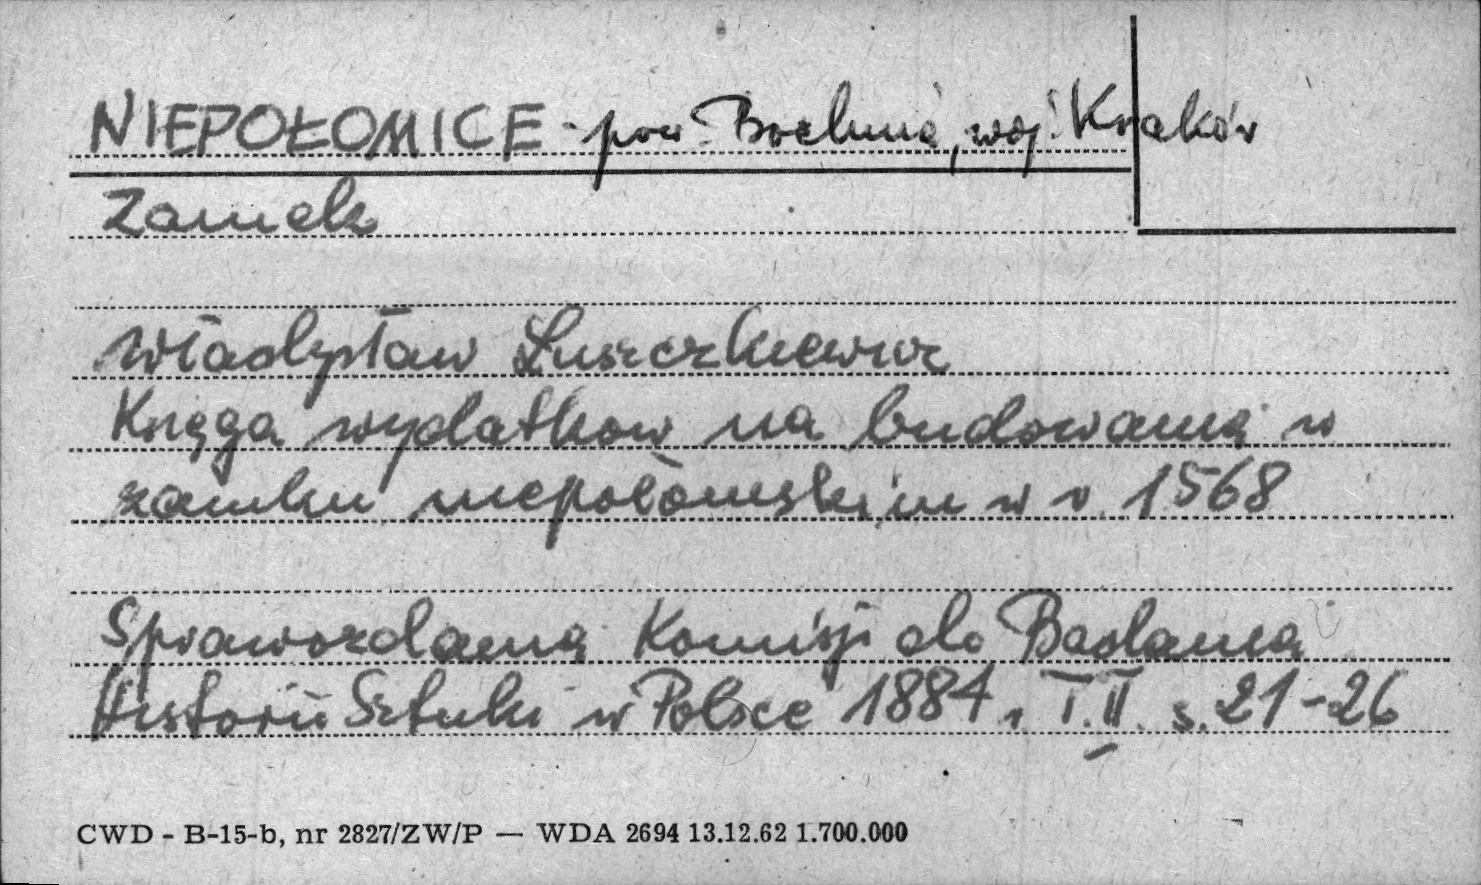 NIEPOŁOMICE - pow. Bochnia, woj. Kraków
Zamek
Władysław Łuszczkiewicz
Księga wydatków na budowania w
zamku niepołomskim w r. 1568
Sprawozdania Komisji do Badania
Historii Sztuki w Polsce 1884 r. T.II. s. 21-26
CWD - B-15-b, nr 2827/ZW/P — WDA 2694 13.12.62 1.700.000